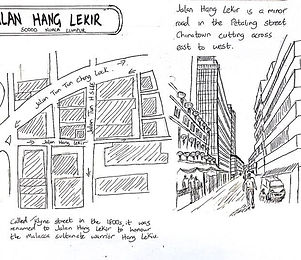 JALAN HANG LEKIR
50000 KUALA LUMPUR
Jalan Hang Lekir is a minor
road in the Petaling street
Chinatown cutting across
east to west.
Jalan Tun Tan Cheng Lock
Jalan Tun H S Lee
Jalan Hang Lekir
Called street in the 1800s, it was
renamed to Jalan Hang Lekir to honour
the Malacca sultanate warrior Hang Lekir.